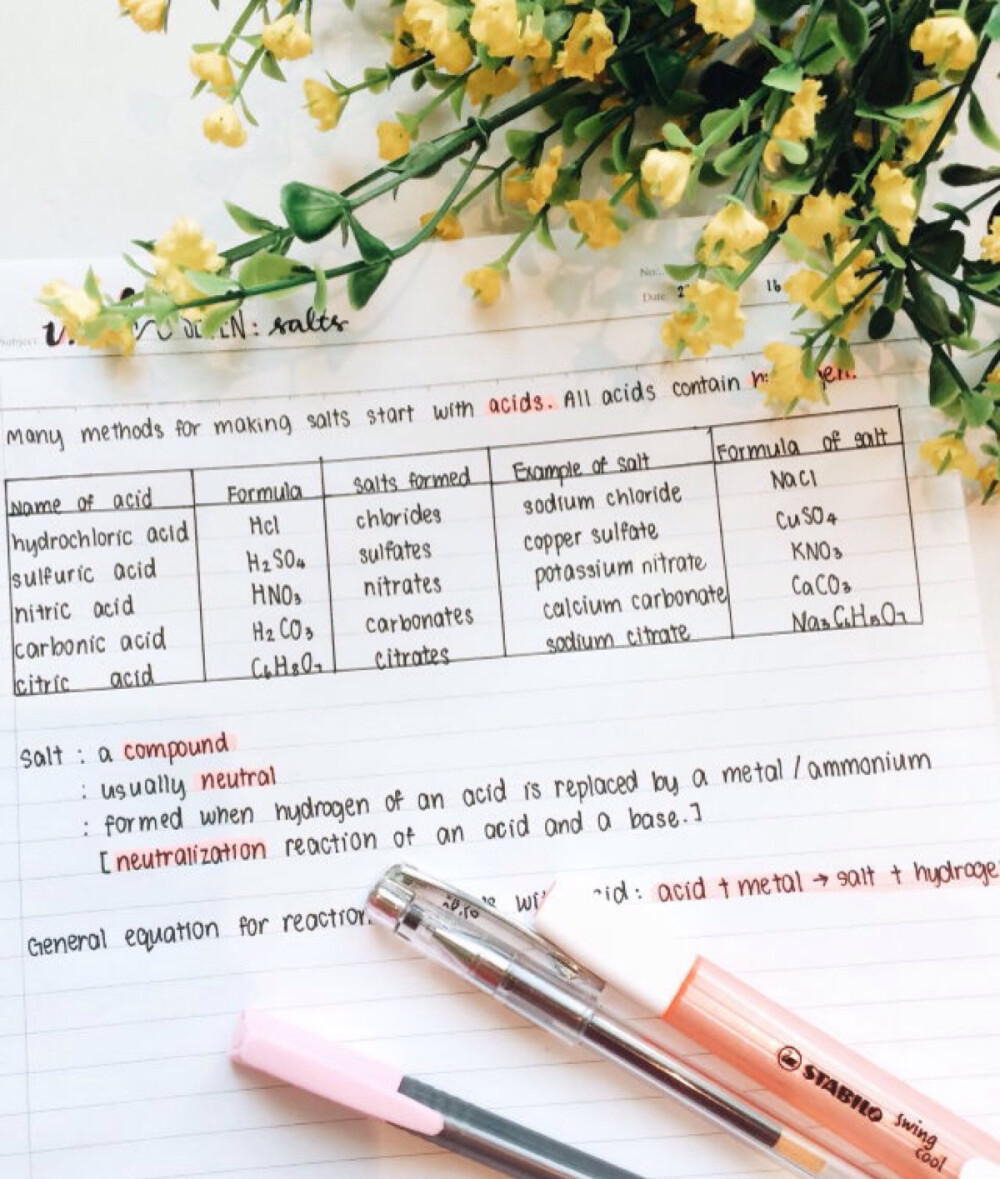 No:
Date:
16
Subject
: salts
Many methods for making salts start with acids. All acids contain
Name of acid Formula Salts formed Example of salt Formula of salt
hydrochloric acid Hcl chlorides sodium chloride NaCl
sulfuric acid H₂SO₄ sulfates copper sulfate CuSO₄
nitric acid HNO₃ nitrates potassium nitrate KNO₃
carbonic acid H₂CO₃ carbonates calcium carbonate CaCO₃
citric acid C₆H₈O₇ citrates sodium citrate Na₃C₆H₅O₇
Salt : a compound
: usually neutral
: formed when hydrogen of an acid is replaced by a metal / ammonium
[neutralization reaction of an acid and a base.]
General equation for reaction : acid + metal → salt + hydroge
STABILO swing
cool